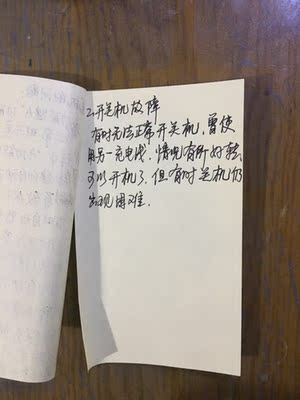 2.开关机故障
有时无法正常开关机,曾使
用另一充电线,情况有所好转
可以开机了,但有时关机仍
出现困难.